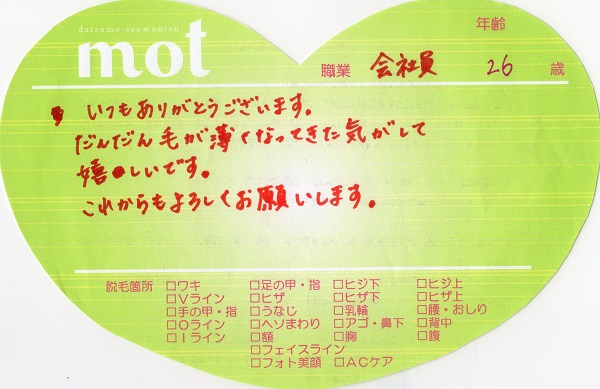 datsumo-senmonten
mot
年齢
職業 会社員 26 歳
いつもありがとうございます。
だんだん毛が薄くなってきた気がして
嬉しいです。
これからもよろしくお願いします。
脱毛箇所 □ワキ □足の甲・指 □ヒジ下 □ヒジ上
□Vライン □ヒザ □ヒザ下 □ヒザ上
□手の甲・指 □うなじ □乳輪 □腰・おしり
□Oライン □ヘソまわり □アゴ・鼻下 □背中
□Iライン □額 □胸 □腹
□フェイスライン
□フォト美顔 □ACケア